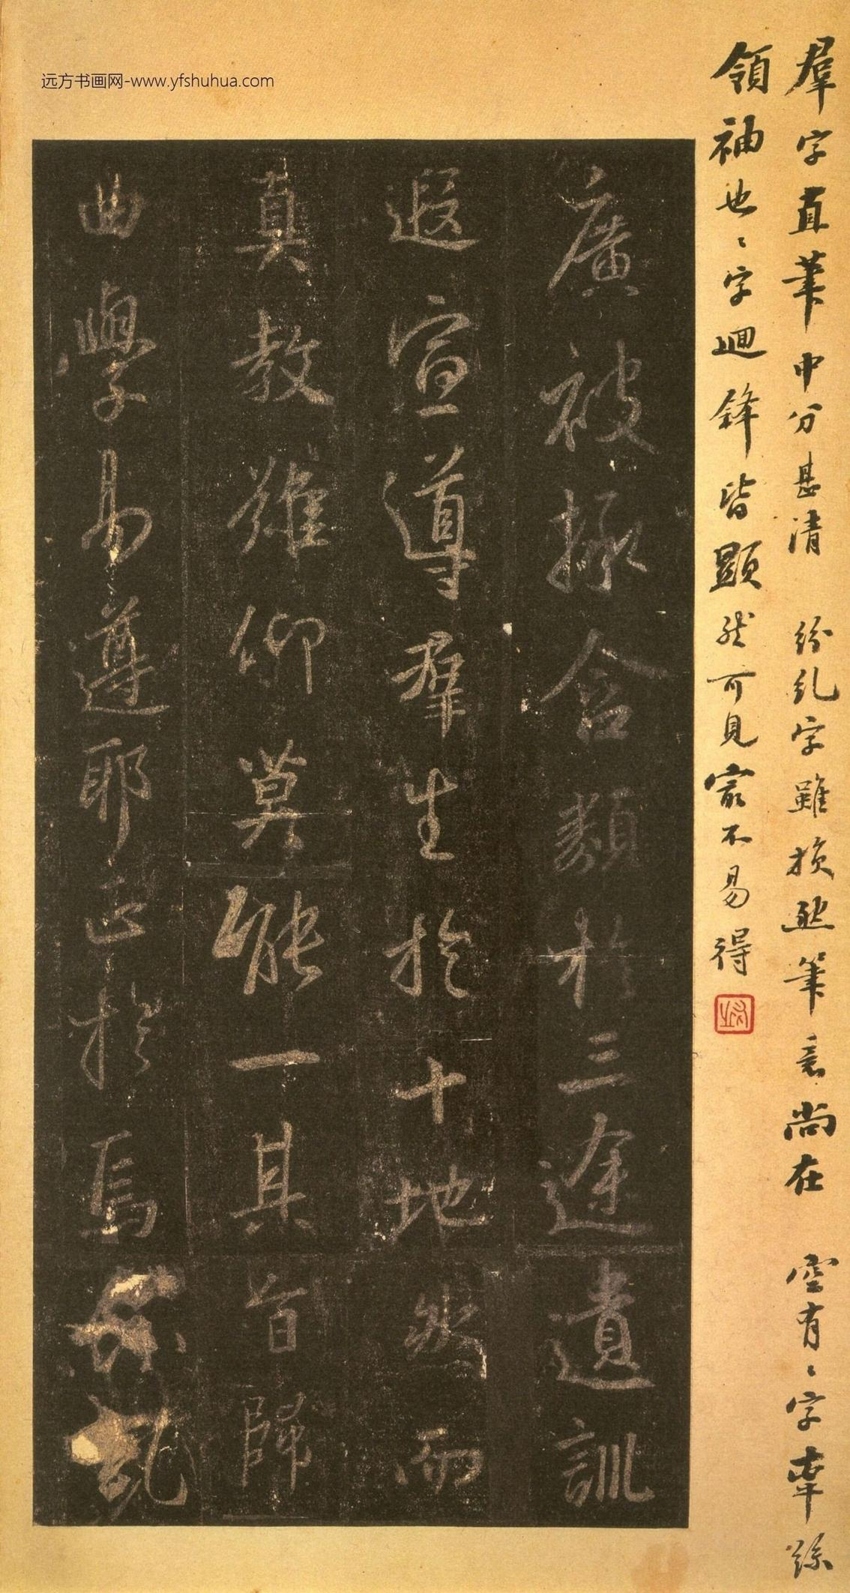 远方书画网-www.yfshuhua.com
羣字直筆中分甚清 紛乱字雖損然筆意尚在 空有〻字牽絲
領袖也〻字迴鋒皆顯然可見寂不易得
廣被拯含類於三途遺訓
遐宣導羣生於十地然而
真教難仰莫能一其旨歸
曲學易遵耶正於焉紛亂